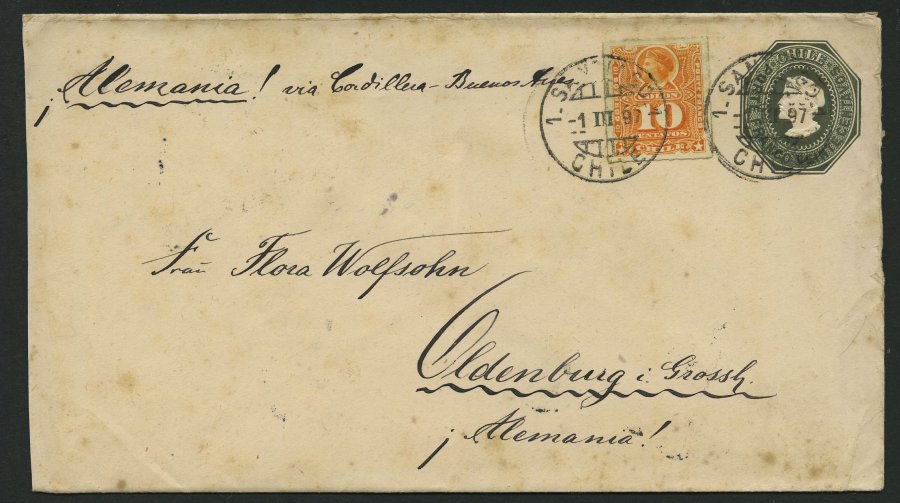 ¡Alemania! via Cordillera - Buenos Aires
COLON
10
CENTAVOS
CHILE
1-SANTIAGO-1
-1 III 97
CHILE
1-SANTIAGO
97
CHILE
Frau Flora Wolfsohn
Oldenburg i. Grossh.
¡Alemania!